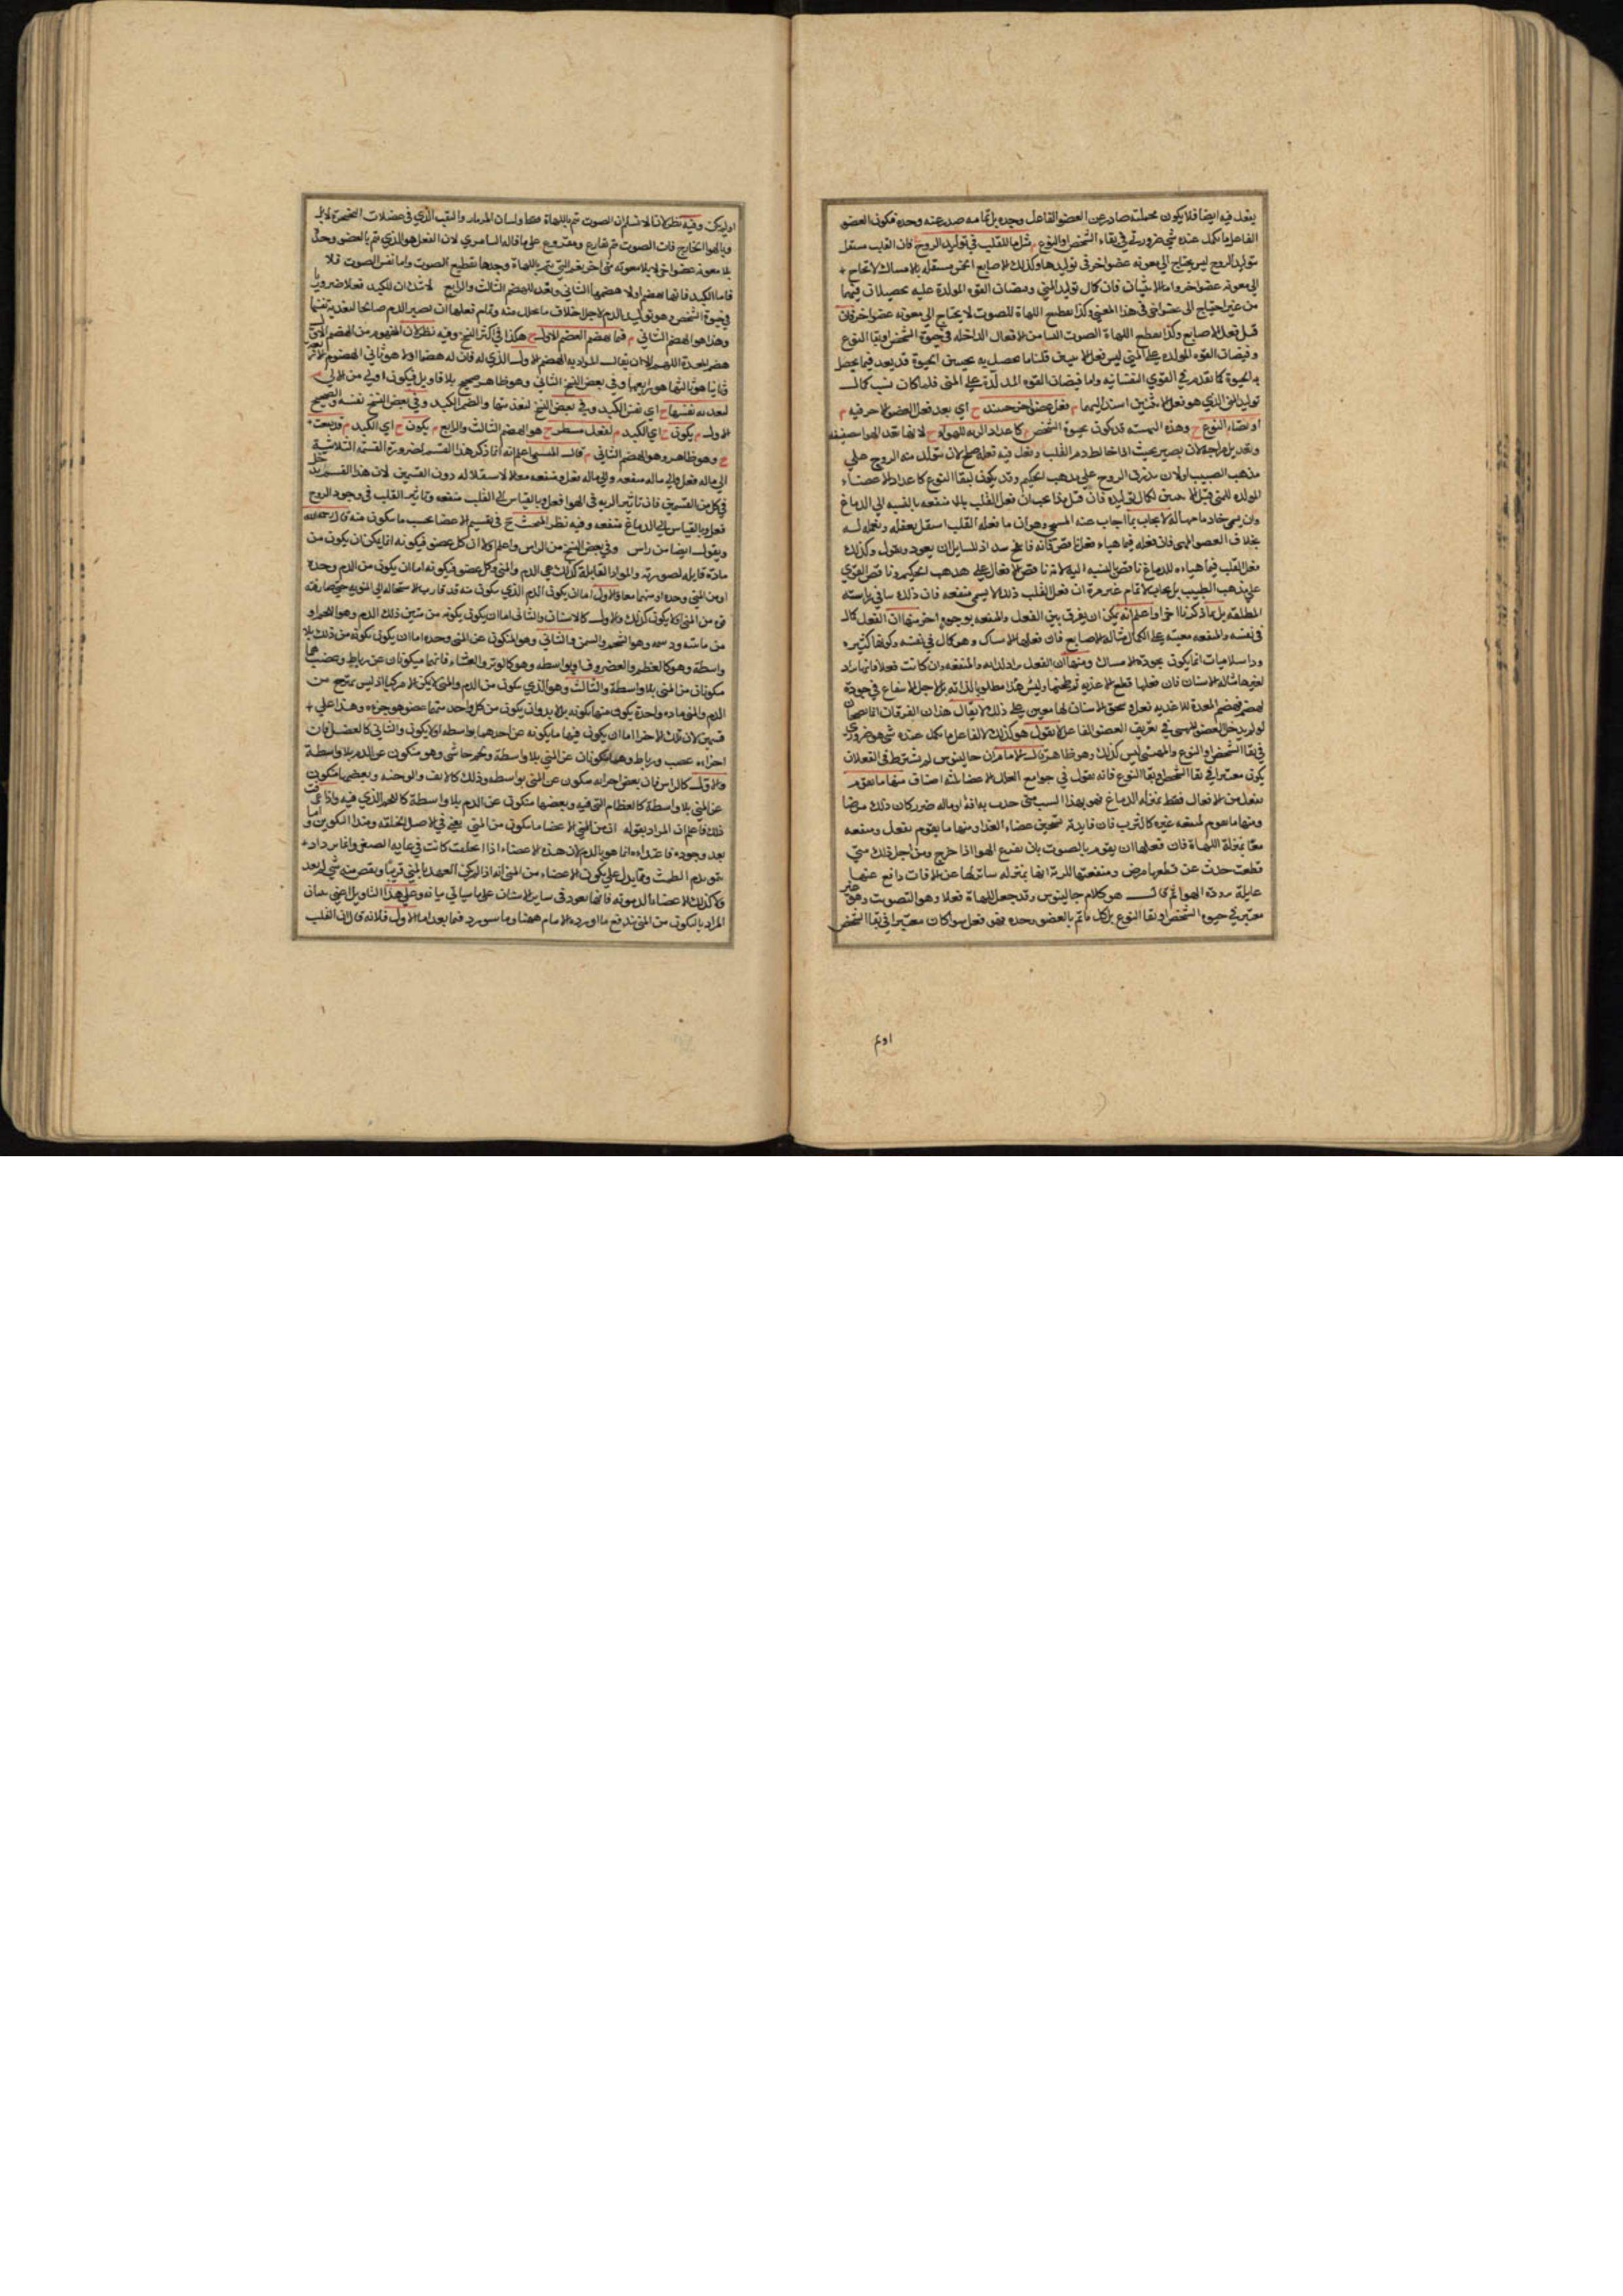 يفعل فيه ايضا فلا يكون بجملته صادر عن العضو الفاعل وحده بل تمامه صدر عنه وحده فيكون العضو
الفاعل ما يكمل عنده شي ضروري في بقاء الشخص او النوع م مثل ما للقلب في توليد الروح ش فان القلب مستقل
بتوليد الروح ليس يحتاج الى معونه عضو اخر في توليدها وكذلك الاصابع مستقله بالامساك لا تحتاج
الى معونه عضو اخر واما الانثيان فان كمال توليد المني وفيضان القوه المولدة عليه يحصل
من غير احتياج الى عضو اخر في هذا المعنى وكذا تقطيع اللهاة للصوت لا يحتاج الى معونه عضو اخر فان
قيل فعل الاصابع وكذا تقطيع اللهاة الصوت ليسا من الافعال الداخله في حيوة الشخص او بقا النوع
وفيضان القوه المولده على المني ليس فعل الانثيين قلنا ما يحصل به تحسين الحيوة قد يعد فيما يحصل
به الحيوة كما تقدم في القوي النفسانيه واما فيضان القوه المولدة على المني فلما كان بسبب كمال
توليد المني الذي هو فعل الانثيين اسند اليهما م فعل عضو اخر حينئذ ح اي بعد فعل العضو الاخر فيه م
او بقاء النوع ح وهذه التهيئه قد يكون بحيوة الشخص م كاعداد الريه للهواء ح لانها تعد الهوا
وتعديل مزاجه لان يصير بحيث اذا خالط دم القلب وفعل فيه فعله صلح لان يتولد منه الروح على
مذهب الطبيب او لان يترقى الروح على مذهب الحكيم وقد يكون لبقا النوع كاعداد الاعضاء
المولده للمني قبل الانثيين لكمال توليده فان قيل هذا يجب ان فعل القلب بالمنفعه بالنسبه الى الدماغ
وان يسمى خادما مهيا له لا يجاب بما اجاب عنه المسيحي وهو ان ما فعله القلب استقل بفعله
بخلاف العضو المهيي فان فعله فيما هياه فعل ناقص لانه للسايل ان يعود ويقول وكذلك
فعل القلب فيما هياه للدماغ ناقص بالنسبه اليه لانه ناقص الافعال على مذهب الحكيم وناقص القوي
على مذهب الطبيب بل يجاب لا تمام غير مرة ان فعل القلب ذلك لا يسمى منفعه فان ذلك ينافي رياسته
المطلقه بل بما ذكرنا اخرا واعلم انه يمكن ان يفرق بين الفعل والمنفعه بوجوه اخر منها ان الفعل كمال
في نفسه والمنفعه معينه على الكمال مثاله الاصابع فان فعلها الامساك وهو كمال في نفسه وكونها كثيره
وذا سلاميات انما يكون بجودة الامساك ومنها ان الفعل مراد لذاته والمنفعه وان كانت فعلا فانها مراد
لغيرها مثاله الاسنان فان فعلها قطع الاغذيه ثم طحنها وليس هذا مطلوبا لذاته بل لاجل الانتفاع في جودة
الهضم فهضم المعدة للاغذيه فعل وسحق الاسنان لها معين على ذلك لا يقال هذان الفرقان انما يصحان
لو لم يدخل العضو المهيي في تعريف العضو الفاعل لانا نقول هو كذلك لان الفاعل ما يكمل عنده شي هو ضروري
في بقا الشخص او النوع والمهيي ليس كذلك وهو ظاهر قال الامام ان جالينوس لم يشترط في الفعل ان
يكون معتبرا في بقا الشخص او بقا النوع فانه يقول في جوامع العلل الاعضا ثلثه اصناف منها ما يقوم
بفعل من الافعال فقط بمنزله الدماغ فهو بهذا السبب متى حدث به افة او ماله ضرر كان ذلك مرضا
ومنها ما يقوم لمنفعه غيره كالثرب فان فايدته تسخين اعضاء الغذا ومنها ما يقوم بفعل ومنفعه
معا بمنزلة اللهاة فان فعلها ان يقوم بالصوت بان يقرع الهوا اذا خرج ومن اجل ذلك متى
قطعت حدث عن قطعها مرض ومنفعتها للرية انها بمنزله ساتر لها عن الافات دافع عنها
عايلة برودة الهوا ثم قال هو كلام جالينوس وقد جعل للهاة فعلا وهو التصويت وهو غير
معتبر في حيوة الشخص او بقا النوع بل كل ما تم بالعضو وحده فهو فعل سوا كان معتبرا في بقا الشخص
او لم
او لم يكن وفيه نظر لانا لا نسلم ان الصوت تم باللهاة فقط ولسان المزمار والثقب الذي في عضلات الحنجرة لابد
وبالهوا الخارج فان الصوت تم بقارع ومقروع على ما قاله السامري لان الفعل هو الذي تم بالعضو وحده
بلا معونه عضو اخر لا بلا معونه شي اخر نعم التي تتم باللهاة وحدها تقطيع الصوت واما نفس الصوت فلا
فاما الكبد فانها تهضم اولا هضمها الثاني وتعد للهضم الثالث والرابع لا شك ان للكبد فعلا ضروريا
في حيوة الشخص وهو توليد الدم لاجل اخلاف ما يتحلل منه وتمام فعلها ان يصير الدم صالحا لتغدية نفسها
وهذا هو الهضم الثاني م فيما تهضم الهضم الاول ح هكذا في اكثر النسخ وفيه نظر لان المفهوم من الهضم الاول
هضم المعدة اللهم الا ان يقال المراد به الهضم الاول الذي له فان له هضما اولا هو ثاني الهضوم الاربعه
وثانيا هو ثالثها هو رابعها وفي بعض النسخ الثاني وهو ظاهر صحيح بلا تاويل فيكون اولى من الاول م
لتغدية نفسها ح اي نفس الكبد وفي بعض النسخ لتغذيتها والضمير الكبد وفي بعض النسخ نفسه والصحيح
الاول م يكون ح اي الكبد م لفعل منتظر ح هو الهضم الثالث والرابع م يكون ح اي الكبد م
ح وهو ظاهر وهو الهضم الثاني م قال المسيحي اعلم انه انما ذكر هذا القسم لضرورة القسمه الثلاثية
الى ماله فعل والى ماله منفعه والى ماله فعل ومنفعه معا لا لاستقلاله دون القسمين لان هذا القسم
في كل من القسمين فان تاثير الريه في الهوا فعل وبالقياس الى القلب منفعه وتاثير القلب في وجود الروح
فعل وبالقياس الى الدماغ منفعه وفيه نظر المبحث ح في تقسيم الاعضا بحسب ما يتكون منه قال رحمه الله
ويقول ايضا من راس وفي بعض النسخ من الراس واعلم ان كل عضو فيكونه انما يمكن ان يكون من
مادة قابله لصورته والمواد القابلة كذلك هي الدم والمني وكل عضو فيكونه اما ان يكون من الدم وحده
او من المني وحده او منهما معا فالاول اما ان يكون الدم الذي يتكون منه قد قارب الاستحاله الى المنويه حتى صار فيه
قوة من المني او لا يكون كذلك والاول كالاسنان والثاني اما ان يكون تكونه من متين ذلك الدم وهو اللحم او
من مائيته ودسمه وهو الشحم والسمن والثاني وهو المتكون عن المني وحده اما ان يكون تكونه من ذلك بلا
واسطة وهو كالعظم والغضروف او بواسطه وهو كالوتر والغشاء فانهما يتكونان عن رباط وعصب هما
متكونان من المني بلا واسطة والثالث وهو الذي يتكون من الدم والمني لا يكون الا مركبا اذ ليس يمتزج من
الدم والمني ماده واحدة يكون منهما تكونه بل لابد وان يكون من كل واحد منهما عضو هو جزءه وهذا على
قسمين لان تلك الاجزا اما ان يكون فيها ما يكونه عن احدهما بواسطه او لا يكون والثاني كالعضل فان
اجزاءه عصب ورباط وهما متكونان عن المني بلا واسطة ولحم حاشي وهو متكون عن الدم بلا واسطة
والاول كالراس فان بعض اجزايه متكون عن المني بواسطه وذلك كالانف والوجنه وبعضها متكون
عن المني بلا واسطة كالعظام التي فيه وبعضها متكون عن الدم بلا واسطة كاللحم الذي فيه واذا عرفت
ذلك فاعلم ان المراد بقوله ان من المني الاعضا ما يتكون من المني يعني في الاصل الخلقه ومبدا التكوين واما
بعد وجوده فاغتذاءه انما هو بالدم لان هذه الاعضاء اذا خلقت كانت في غايه الصغر وانما تزداد
بنمو بدم الطمث ومما يدل على يكون الاعضاء من المني انه اذا لم يكن العهد بالمني قريبا ونقص منه شي لم يعد
ولا كذلك الاعضاء الدمويه فانها تعود في ساير الاسنان على ما سياتي بيانه وعلى هذا التاويل اعني بيان
المراد بالتكون من المني يندفع ما اورده الامام ههنا وما سيورد فيما بعد اما الاول فلانه قال ان القلب